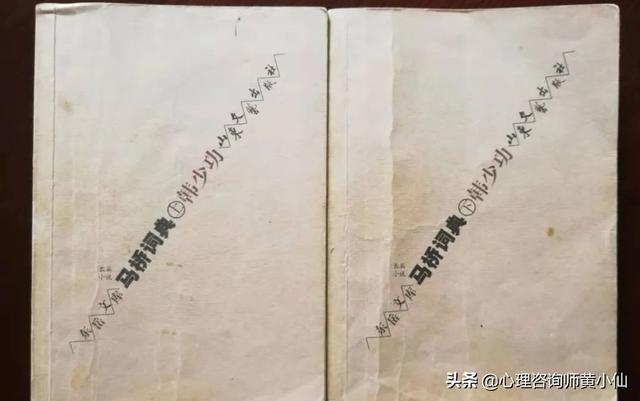 东岳文库
长篇
小说
马桥词典㊤韩少功
山东文艺出版社
东岳文库
长篇
小说
马桥词典㊦韩少功
山东文艺出版社
头条 @心理咨询师黄小仙